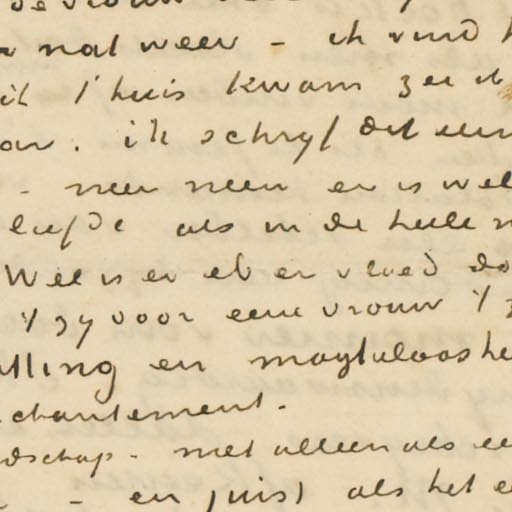 nat weer - ik vind
ik t'huis kwam zei ik
. ik schryf dit
- neen neen er is wel
liefde als in de heele
Wel is er eb en vloed
't zy voor eene vrouw 't
lling en magtelooshe
chantement.
dschap - niet alleen als ee
- en juist als het e